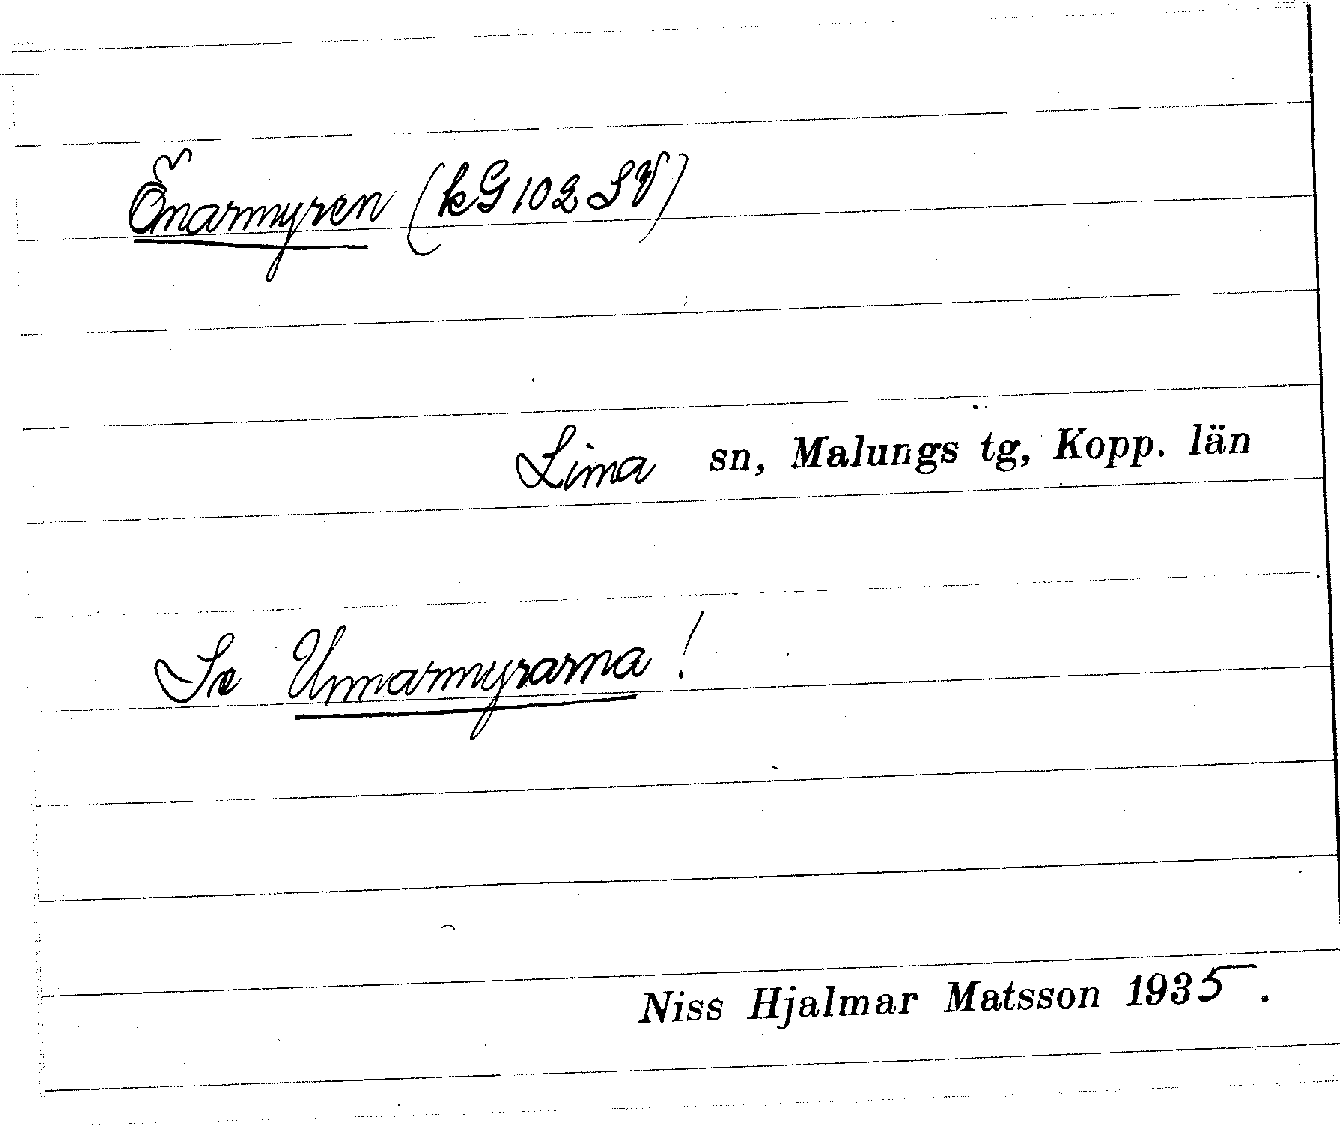 Önarmyren (kG102SV)
Lima sn, Malungs tg, Kopp. län
Se Unnarmyrarna!
Niss Hjalmar Matsson 1935.